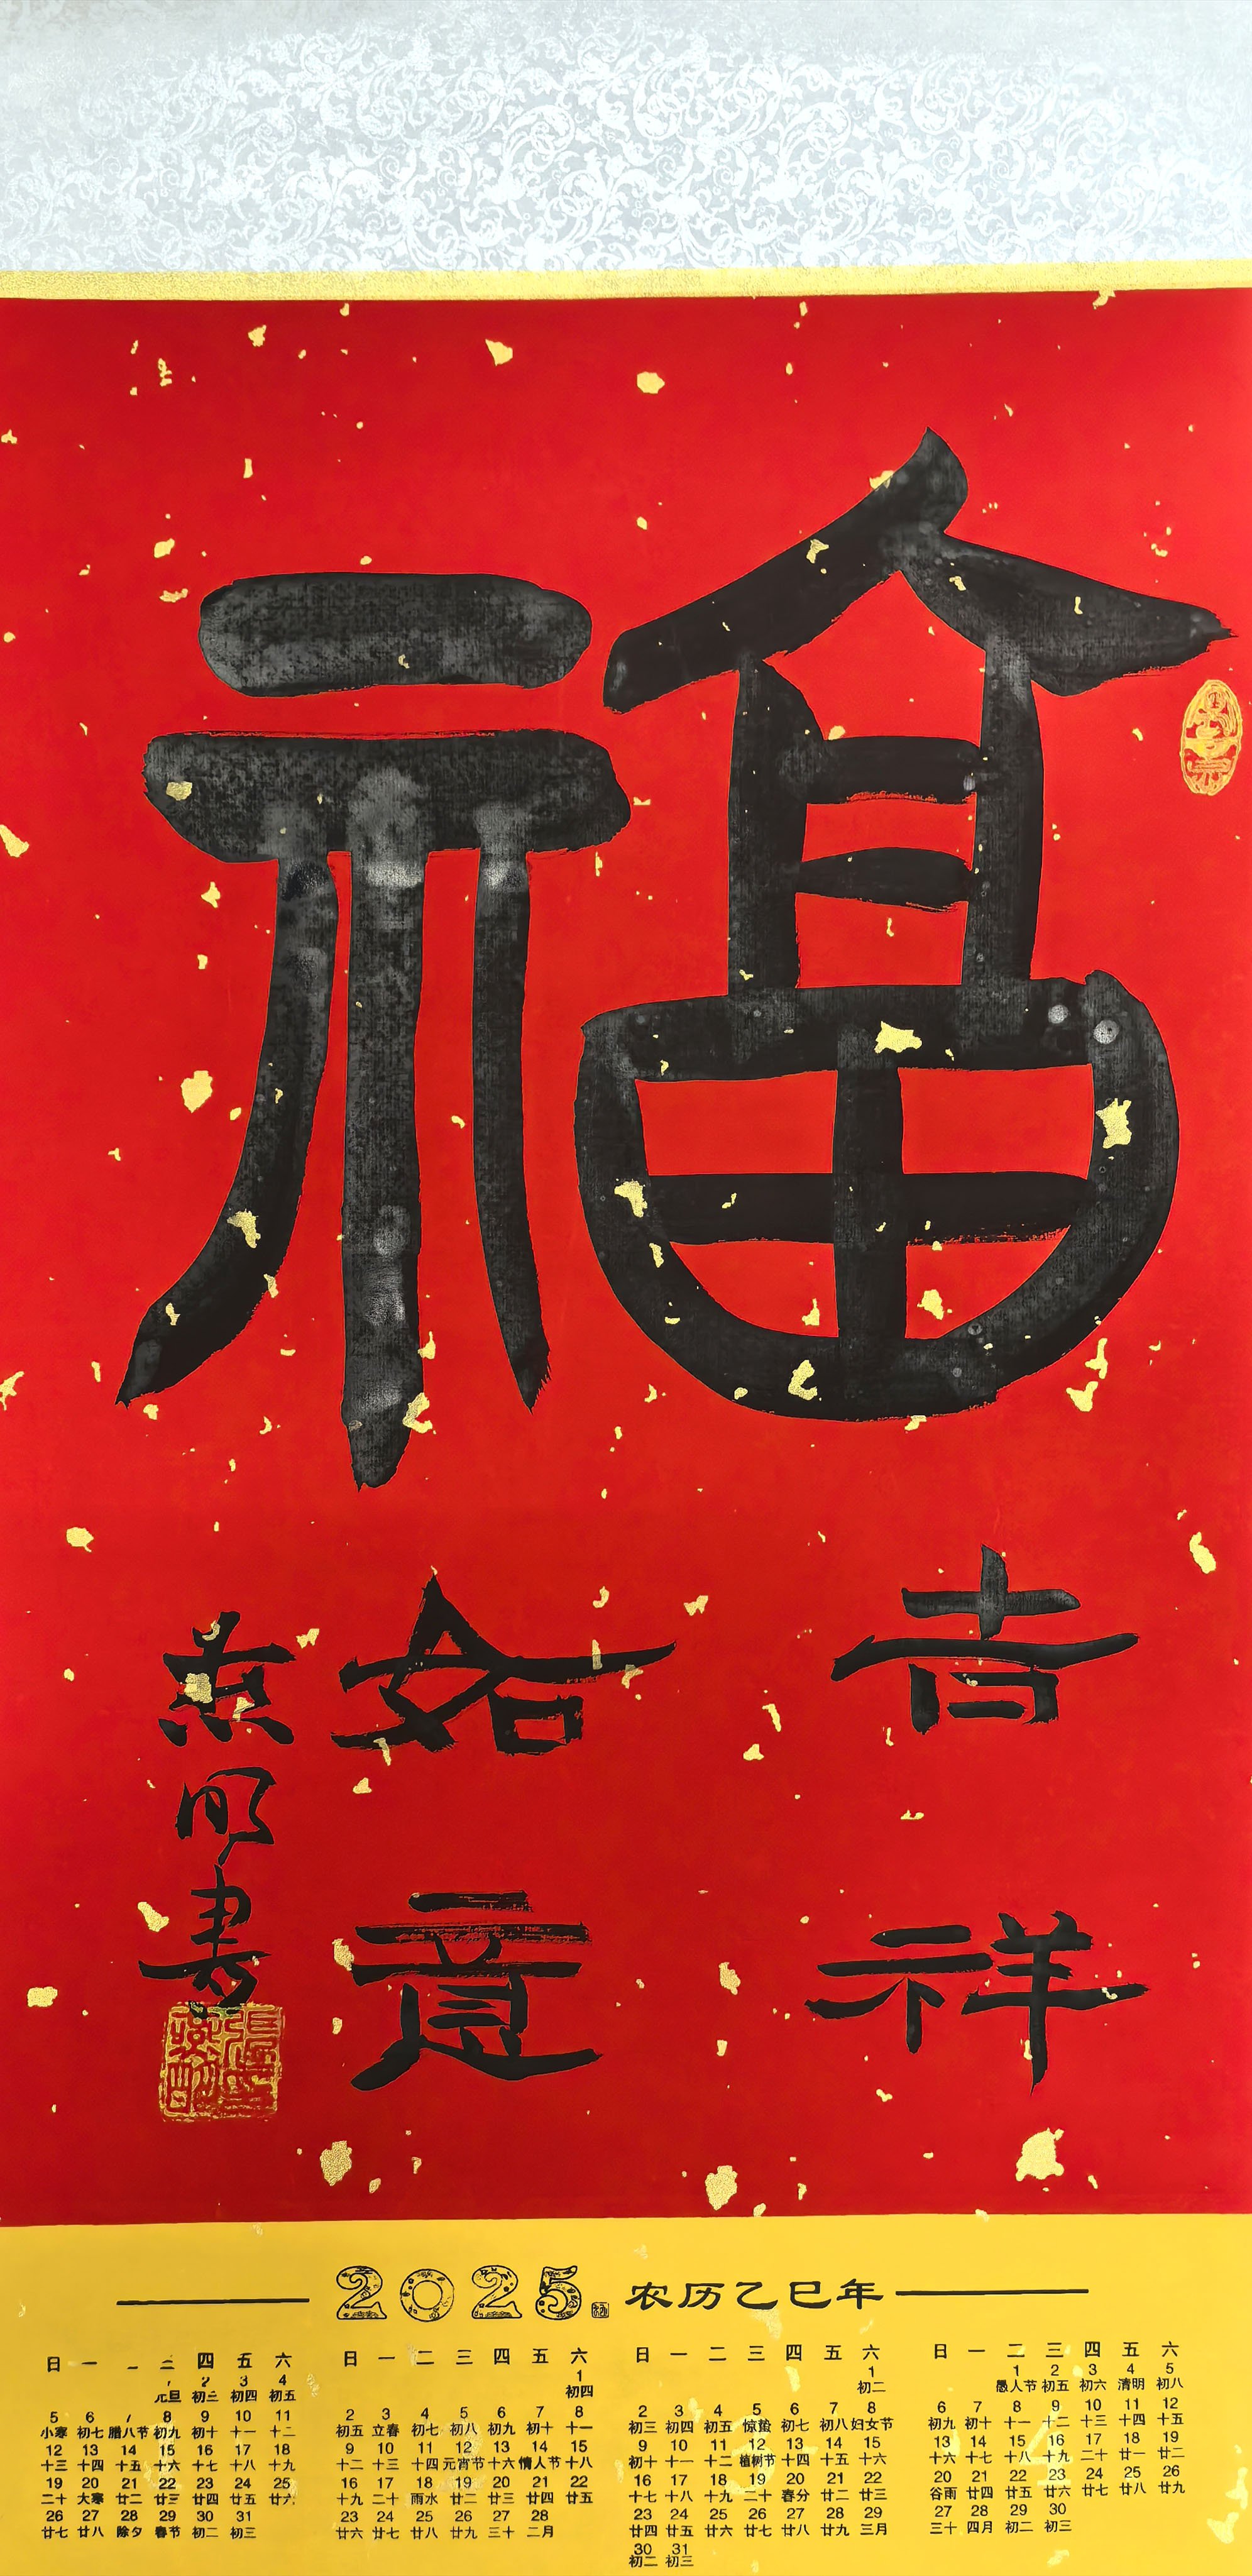 福
吉祥
如意
燕明書
2025 农历乙巳年
日 一 二 三 四 五 六
1 2 3 4
元旦 初三 初四 初五
5 6 7 8 9 10 11
小寒 初七 腊八节 初九 初十 十一 十二
12 13 14 15 16 17 18
十三 十四 十五 十六 十七 十八 十九
19 20 21 22 23 24 25
二十 大寒 廿二 廿三 廿四 廿五 廿六
26 27 28 29 30 31
廿七 廿八 除夕 春节 初二 初三
日 一 二 三 四 五 六
1
初四
2 3 4 5 6 7 8
初五 立春 初七 初八 初九 初十 十一
9 10 11 12 13 14 15
十二 十三 十四 元宵节 十六 情人节 十八
16 17 18 19 20 21 22
十九 二十 雨水 廿二 廿三 廿四 廿五
23 24 25 26 27 28
廿六 廿七 廿八 廿九 三十 二月
日 一 二 三 四 五 六
1
初二
2 3 4 5 6 7 8
初三 初四 初五 惊蛰 初七 初八 妇女节
9 10 11 12 13 14 15
初十 十一 十二 植树节 十四 十五 十六
16 17 18 19 20 21 22
十七 十八 十九 二十 春分 廿二 廿三
23 24 25 26 27 28 29
廿四 廿五 廿六 廿七 廿八 廿九 三月
30 31
初二 初三
日 一 二 三 四 五 六
1 2 3 4 5
愚人节 初五 初六 清明 初八
6 7 8 9 10 11 12
初九 初十 十一 十二 十三 十四 十五
13 14 15 16 17 18 19
十六 十七 十八 十九 二十 廿一 廿二
20 21 22 23 24 25 26
谷雨 廿四 廿五 廿六 廿七 廿八 廿九
27 28 29 30
三十 四月 初二 初三